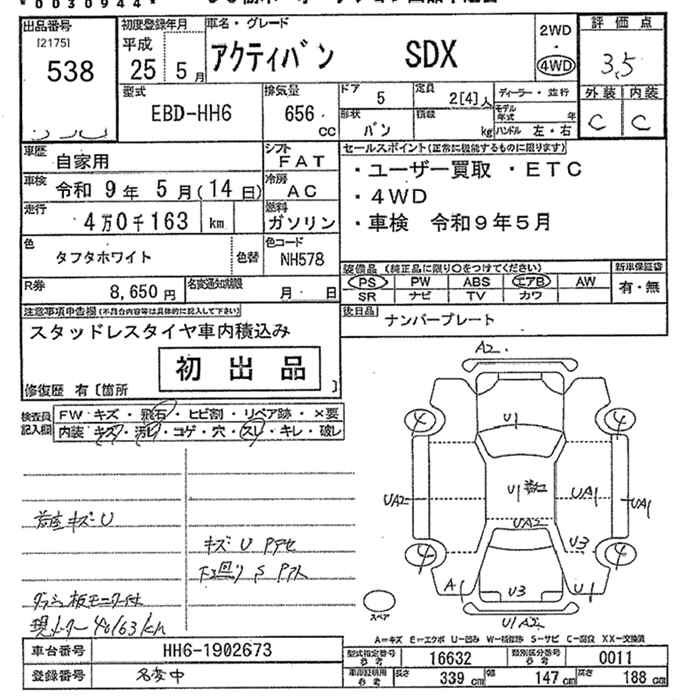 *0030944*
出品番号 初度登録年月 車名・グレード 2WD 評価点
[2175] 平成 アクティバン SDX 4WD 3.5
538 25年5月 外装 内装
型式 排気量 ドア 5 定員 2[4]人 ディーラー・並行 C C
EBD-HH6 656cc 形状 バン 積載 kg モデル年式 年
ハンドル 左・右
車歴 自家用 シフト FAT セールスポイント(正常に機能するものに限ります)
車検 令和9年5月(14日) 冷房 AC ・ユーザー買取 ・ETC
走行 4万0千163 km 燃料 ガソリン ・4WD
・車検 令和9年5月
色 タフタホワイト 色替 色コード NH578
装備品(純正品に限り○をつけてください) 新車保証書
R券 8,650円 名変通知期限 月 日 PS PW ABS エアB AW 有・無
SR ナビ TV カワ
注意事項申告欄(不具合内容等は具体的に記入して下さい) 後日品 ナンバープレート
スタッドレスタイヤ車内積込み
初出品
修復歴 有〔箇所 〕
検査員記入欄 FW キズ・飛石・ヒビ割・リペア跡・×要
内装 キズ・汚レ・コゲ・穴・スレ・キレ・破レ
A2
4 U1 4
UA2 U1 UA1 UA1
UA2
4 U3 4
A1 U3 U1
U1A2
スペア
キズ U
下回り S
現メーター 40163km
A=キズ E=エクボ U=凹み W=補修跡 S=サビ C=腐食 XX=交換済
車台番号 HH6-1902673 型式指定番号 参考 16632 類別区分番号 参考 0011
登録番号 名変中 車庫証明用 参考 長さ 339cm 幅 147cm 高さ 188cm